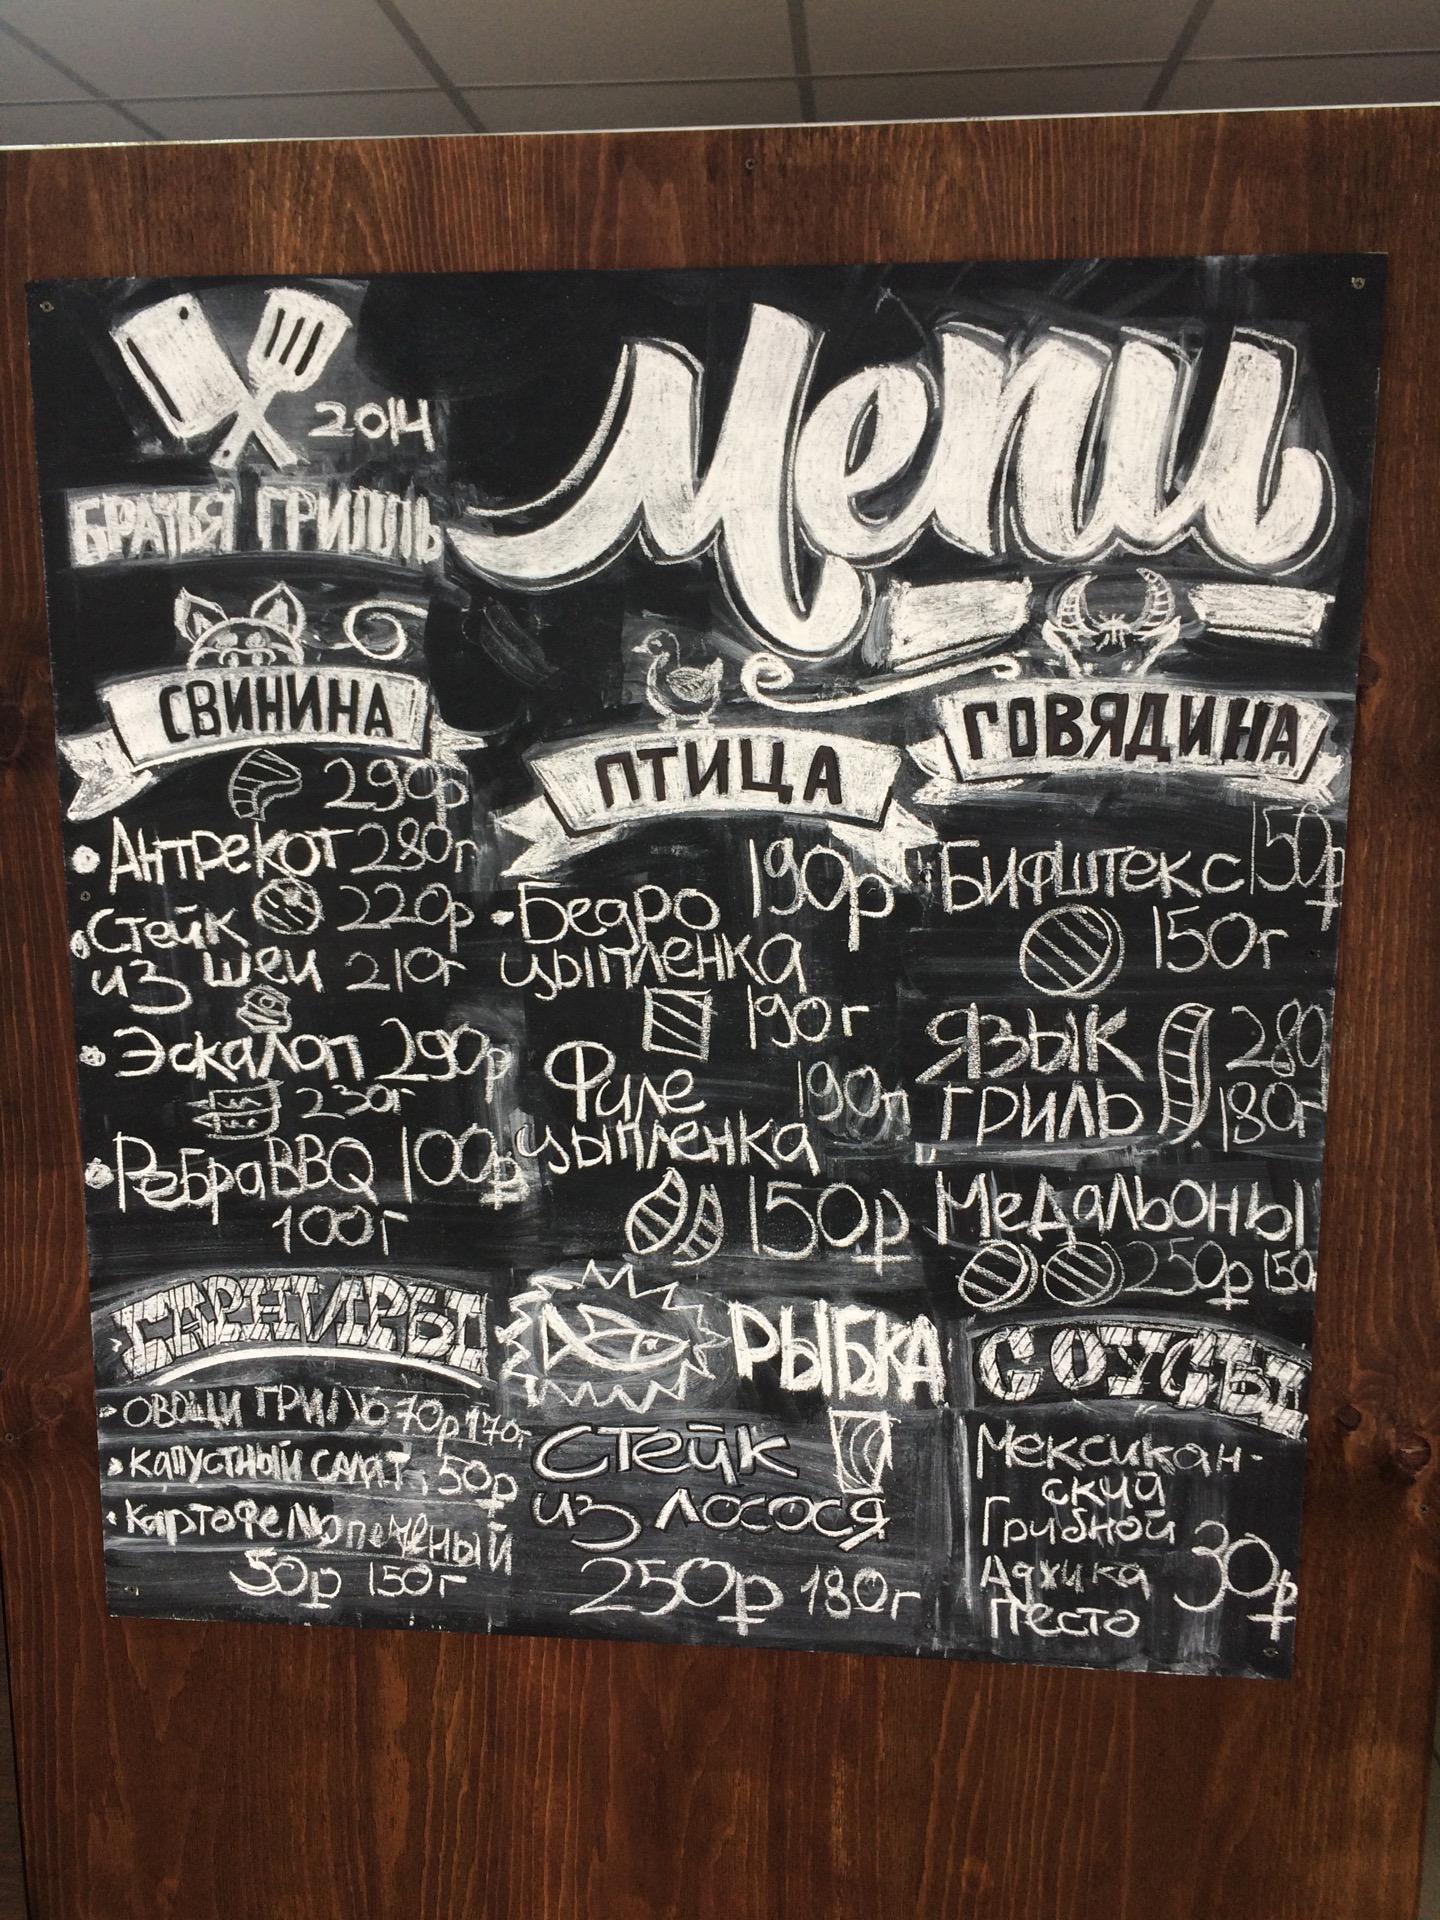 2014
БРАТЬЯ ГРИЛЛЬ
Мепи
СВИНИНА
290р
Антрекот 280г
Стейк 220р
из шеи 210г
Эскалоп 290р
230г
Ребра BBQ 100р
100г
ПТИЦА
Бедро 190р
цыпленка
190г
Филе 190
цыпленка
150р
ГОВЯДИНА
Бифштекс 150р
150г
Язык 280
гриль 180г
Медальоны
250р 150
ГАРНИРЫ
овощи гриль 70р 170г
капустный салат 50р
картофель печеный
50р 150г
РЫБКА
Стейк
из лосося
250р 180г
СОУСЫ
Мексикан-
ский
Грибной
Аджика
Песто
30р